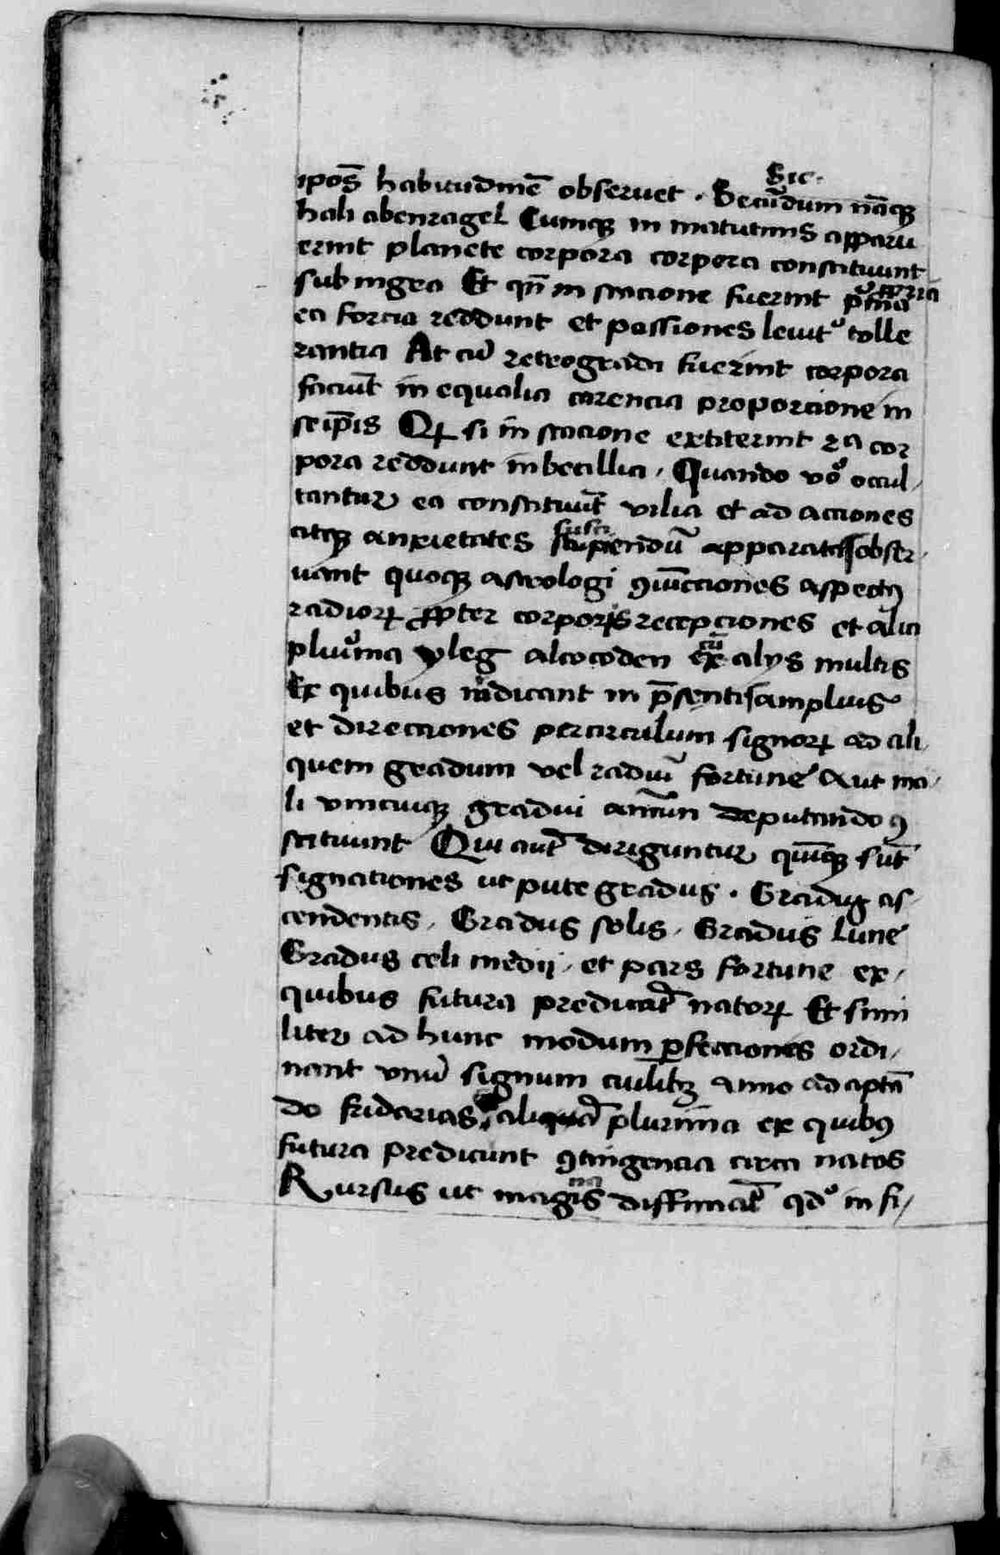 ipōs habitudinē obseruet . Secūdum nāqꝫ
sic.
hali abenragel Cumqꝫ in matutinis apparu
erint planete corpora corpora constituunt
subnigra Et qn̄ in stacione fuerint p̄ma
ea forcia reddunt et passiones leuit᷑ tolle
rantia At cū retrograda fuerint corpora
faciūt in equalia carencia proporcione in
seip̄is Qꝫ si in stacione extiterint 2a cor
pora reddunt inbecillia . Quando vō occul
tantur ea constituūt vilia et ad acciones
atqꝫ anxietates suscipiendū apparatas obser
uant quoqꝫ astrologi ꝯiūcciones aspectꝰ
radioꝝ ꝓpter corporis recepciones et alia
plurima yleg alcocoden cū alijs multis
Ex quibus iudicant in p̄senti amplius
et direcciones per circulum signoꝝ ad ali
quem gradum vel radiū fortune Aut ma
li vnicuiqꝫ gradui annum deputando ꝯ
stituunt Qui aut̄ diriguntur quīqꝫ sūt
signaciones ut pute gradus . Gradus as
cendentis . Gradus solis . Gradus lune
Gradus celi medij . et pars fortune ex
quibus futura predicāt natoꝝ Et simi
liter ad hunc modum ꝑfecciones ordi
nant vnū signum cuilibꝫ anno adaptā
do fridarias plurima ex quibꝰ
futura predicunt ꝯtingencia circa natos
Rursus ut magis diffiniāt qd᷑ in si